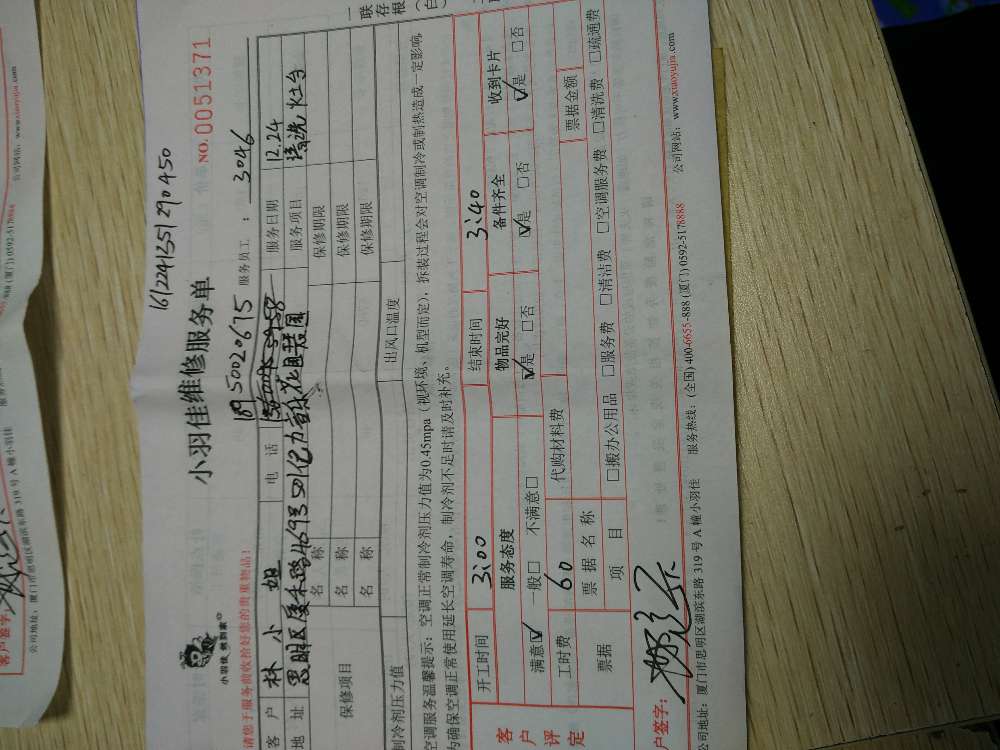 一联存根（白
1612241531290450
小羽佳维修服务单 NO.0051371
小羽佳 就到家
18950020615
请您于服务前收拾好您的贵重物品！ 服务员工：3046
客户 林小姐 电话 服务日期 12.24
地址 思明区 路 亿力 花园 服务项目 清洗灶台
保修项目 名称 保修期限
名称 保修期限
名称 保修期限
制冷剂压力值 出风口温度
空调服务温馨提示：空调正常制冷剂压力值为0.45mpa（视环境、机型而定），拆装过程会对空调制冷或制热造成一定影响，
为确保空调正常使用延长空调寿命，制冷剂不足时请及时补充。
客户评定 开工时间 3:00 结束时间 3:40
服务态度 物品完好 备件齐全 收到卡片
满意☑ 一般□ 不满意□ ☑是 □否 ☑是 □否 ☑是 □否
工时费 60 代购材料费 票据金额
票据 票据名称项目 □搬办公用品 □服务费 □清洁费 □空调服务费 □清洗费 □疏通费
户签字：
公司地址：厦门市思明区湖滨东路 319 号 A 幢小羽佳 服务热线：（全国）400-6655-888 (厦门) 0592-5178888 公司网站：www.xiaoyujia.com
客户签字
公司地址：厦门市思明区湖滨东路 319 号 A 幢小羽佳
服务
888 (厦门) 0592-5178888
公司网站：www.xiaoyujia.com